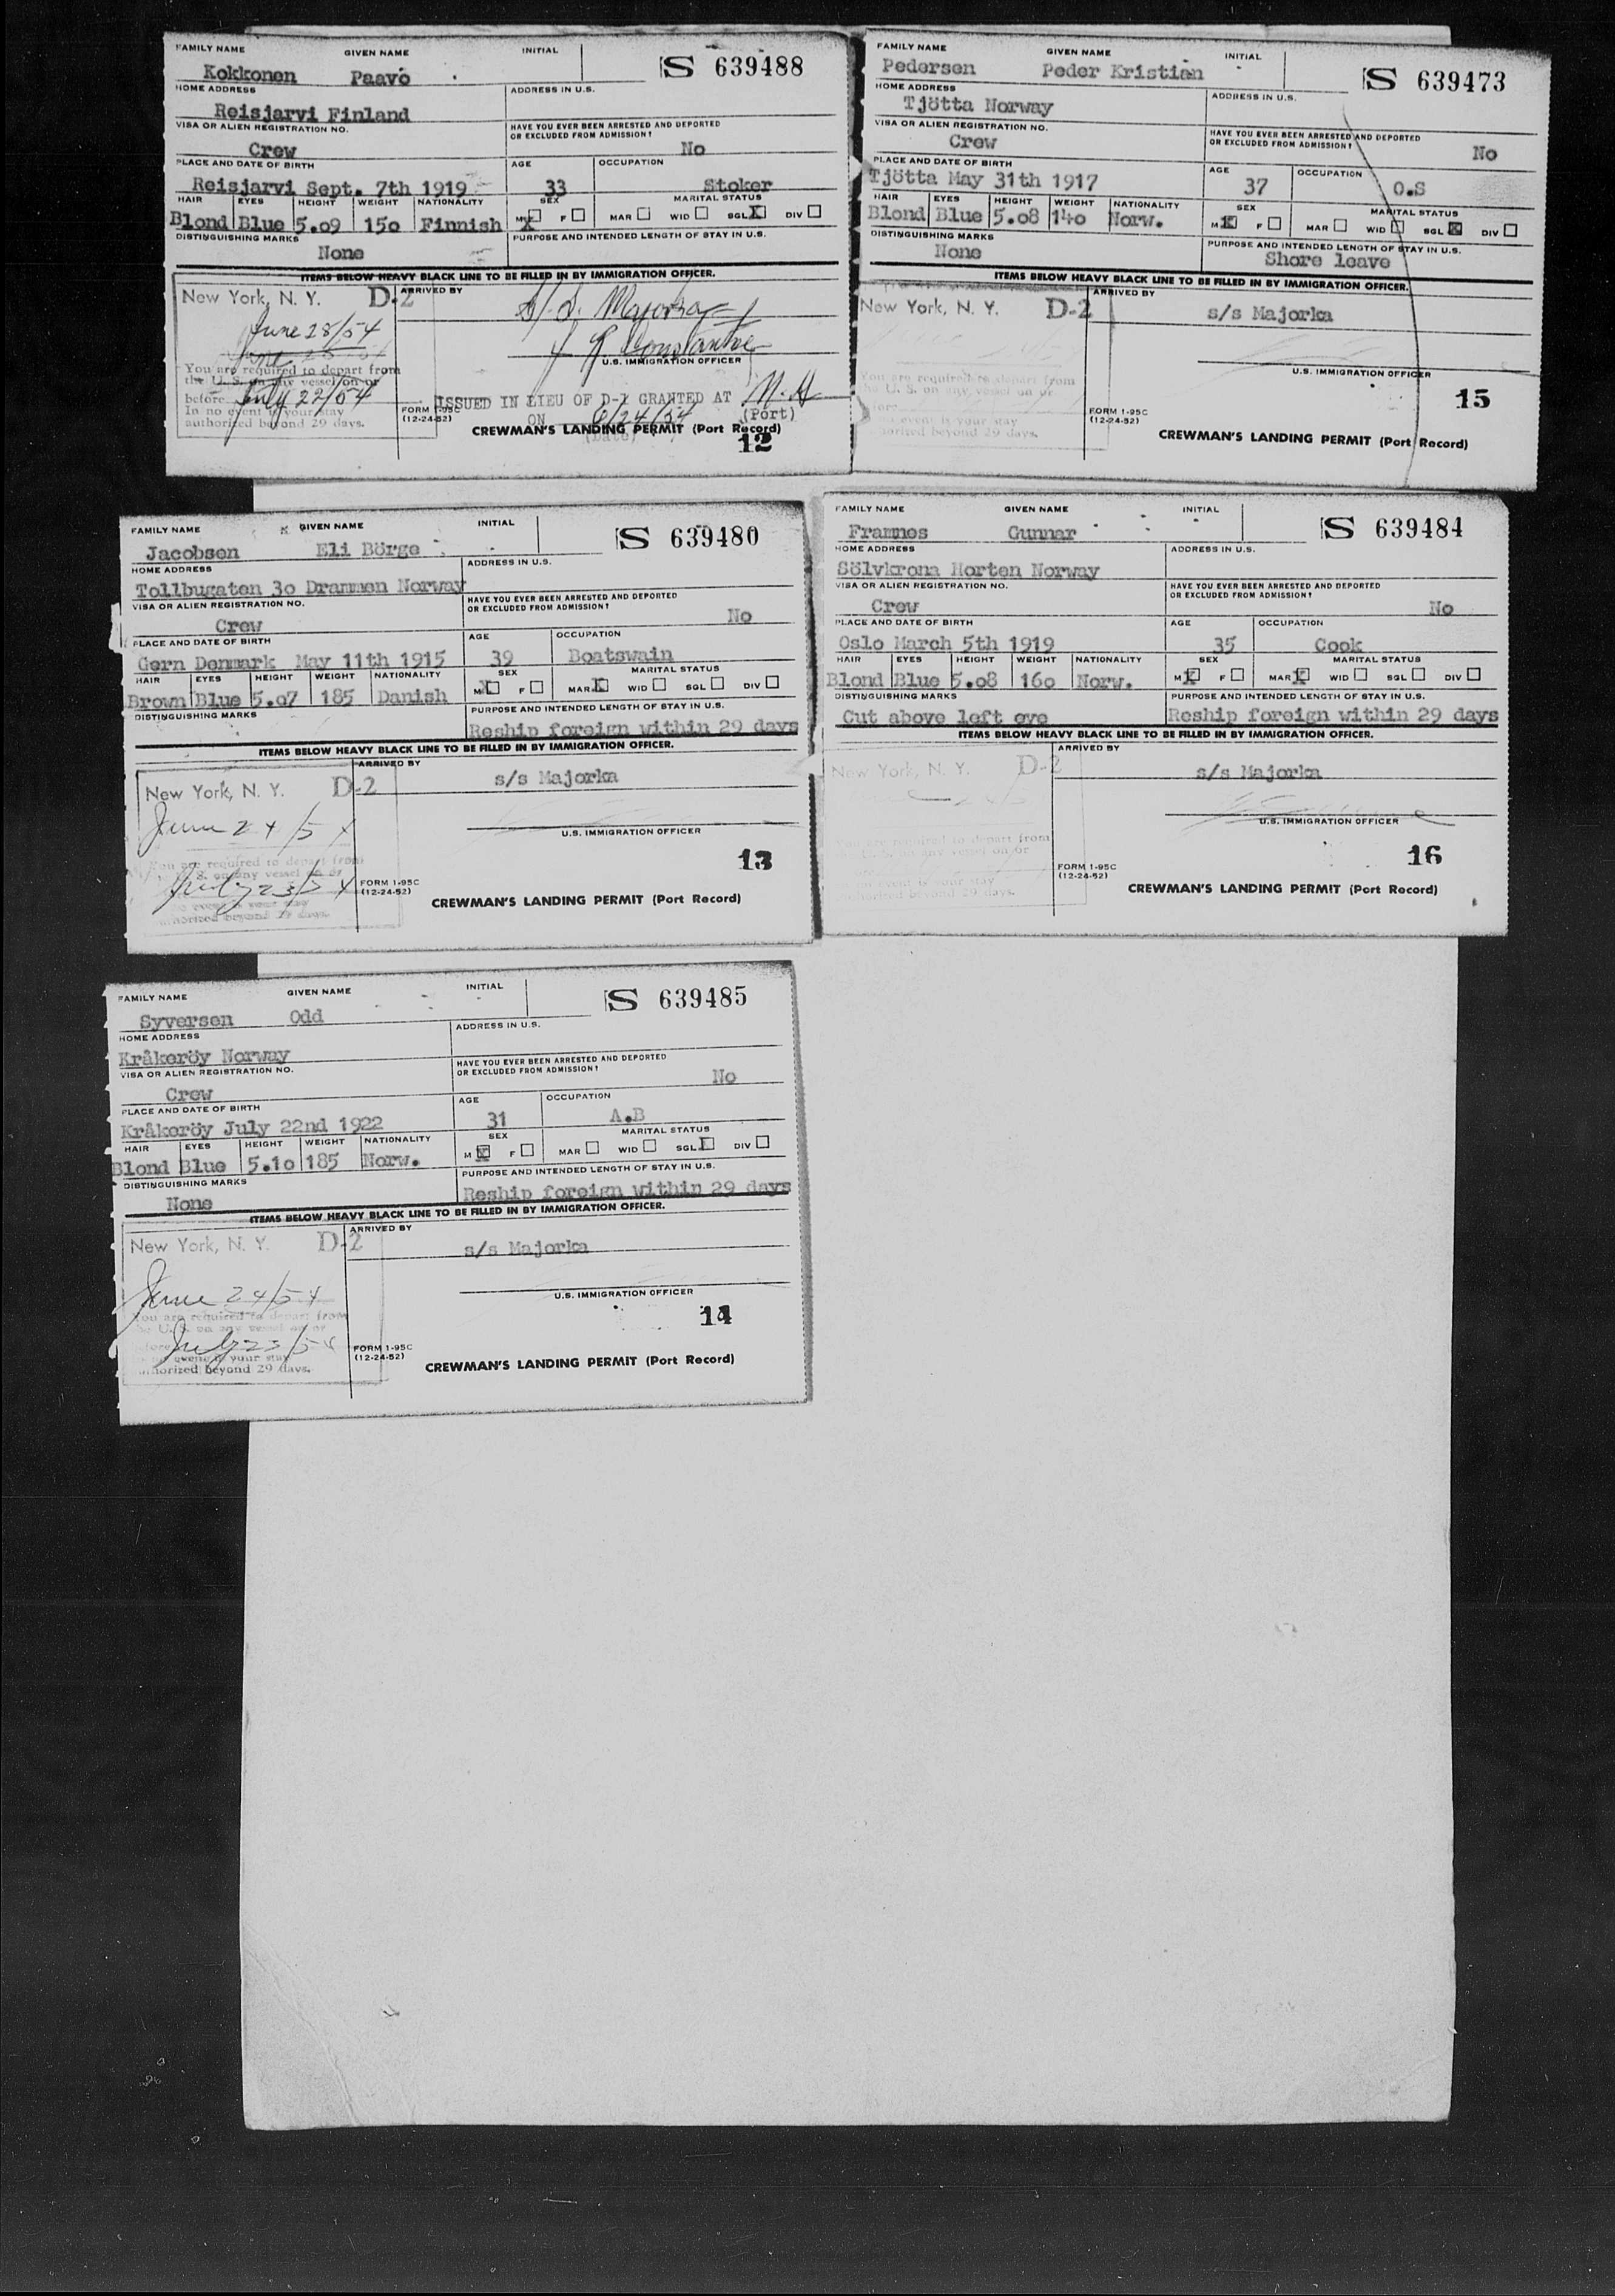 FAMILY NAME GIVEN NAME INITIAL
Kokkonen Paavo S 639488
HOME ADDRESS ADDRESS IN U.S.
Reisjarvi Finland
VISA OR ALIEN REGISTRATION NO. HAVE YOU EVER BEEN ARRESTED AND DEPORTED
OR EXCLUDED FROM ADMISSION?
Crew No
PLACE AND DATE OF BIRTH AGE OCCUPATION
Reisjarvi Sept. 7th 1919 33 Stoker
HAIR EYES HEIGHT WEIGHT NATIONALITY SEX MARITAL STATUS
Blond Blue 5.09 150 Finnish M X F MAR WID SGL X DIV
DISTINGUISHING MARKS PURPOSE AND INTENDED LENGTH OF STAY IN U.S.
None
ITEMS BELOW HEAVY BLACK LINE TO BE FILLED IN BY IMMIGRATION OFFICER.
New York, N. Y. D-2 ARRIVED BY S/S. Majorka
June 28/54
U.S. IMMIGRATION OFFICER
You are required to depart from
the U. S. on any vessel on or
before July 22/54
In no event is your stay
authorized beyond 29 days.
ISSUED IN LIEU OF D-1 GRANTED AT
ON 6/24/54 (Port)
(Date)
FORM I-95C
(12-24-52)
CREWMAN'S LANDING PERMIT (Port Record)
12
FAMILY NAME GIVEN NAME INITIAL
Pedersen Peder Kristian S 639473
HOME ADDRESS ADDRESS IN U.S.
Tjötta Norway
VISA OR ALIEN REGISTRATION NO. HAVE YOU EVER BEEN ARRESTED AND DEPORTED
OR EXCLUDED FROM ADMISSION?
Crew No
PLACE AND DATE OF BIRTH AGE OCCUPATION
Tjötta May 31th 1917 37 O.S
HAIR EYES HEIGHT WEIGHT NATIONALITY SEX MARITAL STATUS
Blond Blue 5.08 140 Norw. M X F MAR WID SGL X DIV
DISTINGUISHING MARKS PURPOSE AND INTENDED LENGTH OF STAY IN U.S.
None Shore leave
ITEMS BELOW HEAVY BLACK LINE TO BE FILLED IN BY IMMIGRATION OFFICER.
New York, N. Y. D-2 ARRIVED BY s/s Majorka
U.S. IMMIGRATION OFFICER
You are required to depart from
the U. S. on any vessel on or
15
FORM I-95C
(12-24-52)
CREWMAN'S LANDING PERMIT (Port Record)
FAMILY NAME GIVEN NAME INITIAL
Jacobsen Eli Börge S 639480
HOME ADDRESS ADDRESS IN U.S.
Tollbugaten 30 Drammen Norway
VISA OR ALIEN REGISTRATION NO. HAVE YOU EVER BEEN ARRESTED AND DEPORTED
OR EXCLUDED FROM ADMISSION?
Crew No
PLACE AND DATE OF BIRTH AGE OCCUPATION
Gern Denmark May 11th 1915 39 Boatswain
HAIR EYES HEIGHT WEIGHT NATIONALITY SEX MARITAL STATUS
Brown Blue 5.07 185 Danish M X F MAR X WID SGL DIV
DISTINGUISHING MARKS PURPOSE AND INTENDED LENGTH OF STAY IN U.S.
Reship foreign within 29 days
ITEMS BELOW HEAVY BLACK LINE TO BE FILLED IN BY IMMIGRATION OFFICER.
New York, N. Y. D-2 ARRIVED BY s/s Majorka
June 24/54
U.S. IMMIGRATION OFFICER
You are required to depart from
July 23/54
13
FORM I-95C
(12-24-52)
CREWMAN'S LANDING PERMIT (Port Record)
FAMILY NAME GIVEN NAME INITIAL
Framnes Gunnar S 639484
HOME ADDRESS ADDRESS IN U.S.
Sölvkrona Horten Norway
VISA OR ALIEN REGISTRATION NO. HAVE YOU EVER BEEN ARRESTED AND DEPORTED
OR EXCLUDED FROM ADMISSION?
Crew No
PLACE AND DATE OF BIRTH AGE OCCUPATION
Oslo March 5th 1919 35 Cook
HAIR EYES HEIGHT WEIGHT NATIONALITY SEX MARITAL STATUS
Blond Blue 5.08 160 Norw. M X F MAR X WID SGL DIV
DISTINGUISHING MARKS PURPOSE AND INTENDED LENGTH OF STAY IN U.S.
Cut above left eye Reship foreign within 29 days
ITEMS BELOW HEAVY BLACK LINE TO BE FILLED IN BY IMMIGRATION OFFICER.
New York, N. Y. D-2 ARRIVED BY s/s Majorka
U.S. IMMIGRATION OFFICER
16
FORM I-95C
(12-24-52)
CREWMAN'S LANDING PERMIT (Port Record)
FAMILY NAME GIVEN NAME INITIAL
Syversen Odd S 639485
HOME ADDRESS ADDRESS IN U.S.
Kråkeröy Norway
VISA OR ALIEN REGISTRATION NO. HAVE YOU EVER BEEN ARRESTED AND DEPORTED
OR EXCLUDED FROM ADMISSION?
Crew No
PLACE AND DATE OF BIRTH AGE OCCUPATION
Kråkeröy July 22nd 1922 31 A.B
HAIR EYES HEIGHT WEIGHT NATIONALITY SEX MARITAL STATUS
Blond Blue 5.10 185 Norw. M X F MAR WID SGL X DIV
DISTINGUISHING MARKS PURPOSE AND INTENDED LENGTH OF STAY IN U.S.
None Reship foreign within 29 days
ITEMS BELOW HEAVY BLACK LINE TO BE FILLED IN BY IMMIGRATION OFFICER.
New York, N. Y. D-2 ARRIVED BY s/s Majorka
June 24/54
U.S. IMMIGRATION OFFICER
You are required to depart from
July 23/54
beyond 29 days.
14
FORM I-95C
(12-24-52)
CREWMAN'S LANDING PERMIT (Port Record)